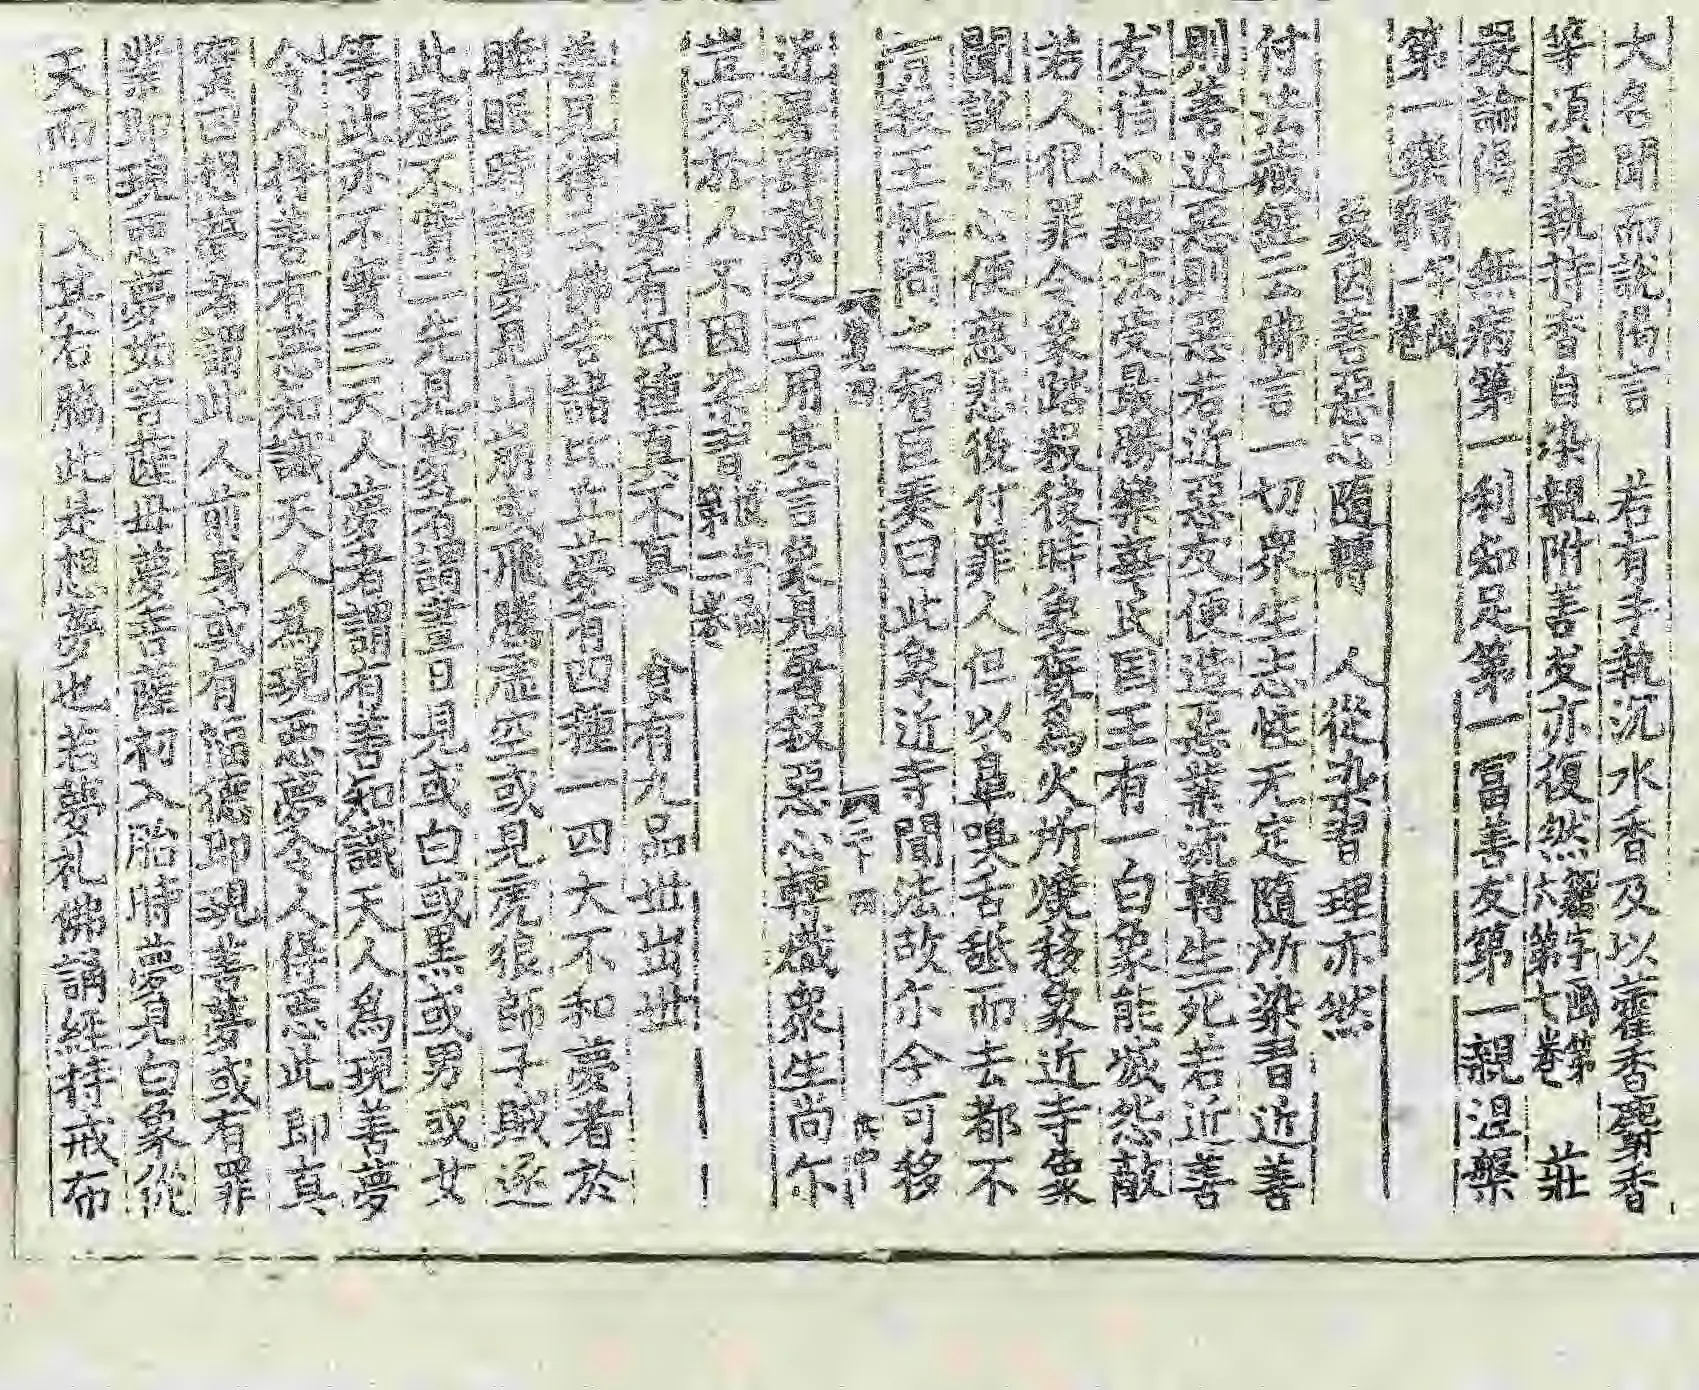 大名聞而說偈言 若有手執沉水香及以藿香麝香
等須臾執持香自染親附善友亦復然籠字函第六第七卷 莊
嚴論偈 無病第一利知足第一冨善友第一親涅槃
第一樂
象因善惡心随轉 人從染習理亦然
付法藏經云佛言一切衆生志性无定随所染習近善
則善近惡則惡若近惡友便造惡業流轉生死若近善
友信心聽法受最勝樂華氏國王有一白象能滅怨敵
若人犯罪令象踏殺後時象廐為火所燒移象近寺象
聞說法心便慈悲後付罪人但以鼻嗅舌舐而去都不
殺王怪問之智臣奏曰此象近寺聞法故尒今可移
近屠肆繫之王用其言象見屠殺惡心轉熾衆生尚尒
豈况於人不因染者 第二卷
夢有四種真不真 食有九品世出世
善見律云佛告諸比丘夢有四種一四大不和夢者於
睡眠時夢見山崩或飛騰虛空或見虎狼師子賊逐
此虛不實二先見夢者謂晝日見或白或黑或男或女
等此亦不實三天人夢者謂有善知識天人為現善夢
令人得善有惡知識天人為現惡夢令人得惡此即真
實四想夢者謂此人前身或有福德即現善夢或有罪
業即現惡夢如菩薩母夢菩薩初入胎時夢見白象從
天而下入其右脇此是想夢也若夢礼佛誦經持戒布